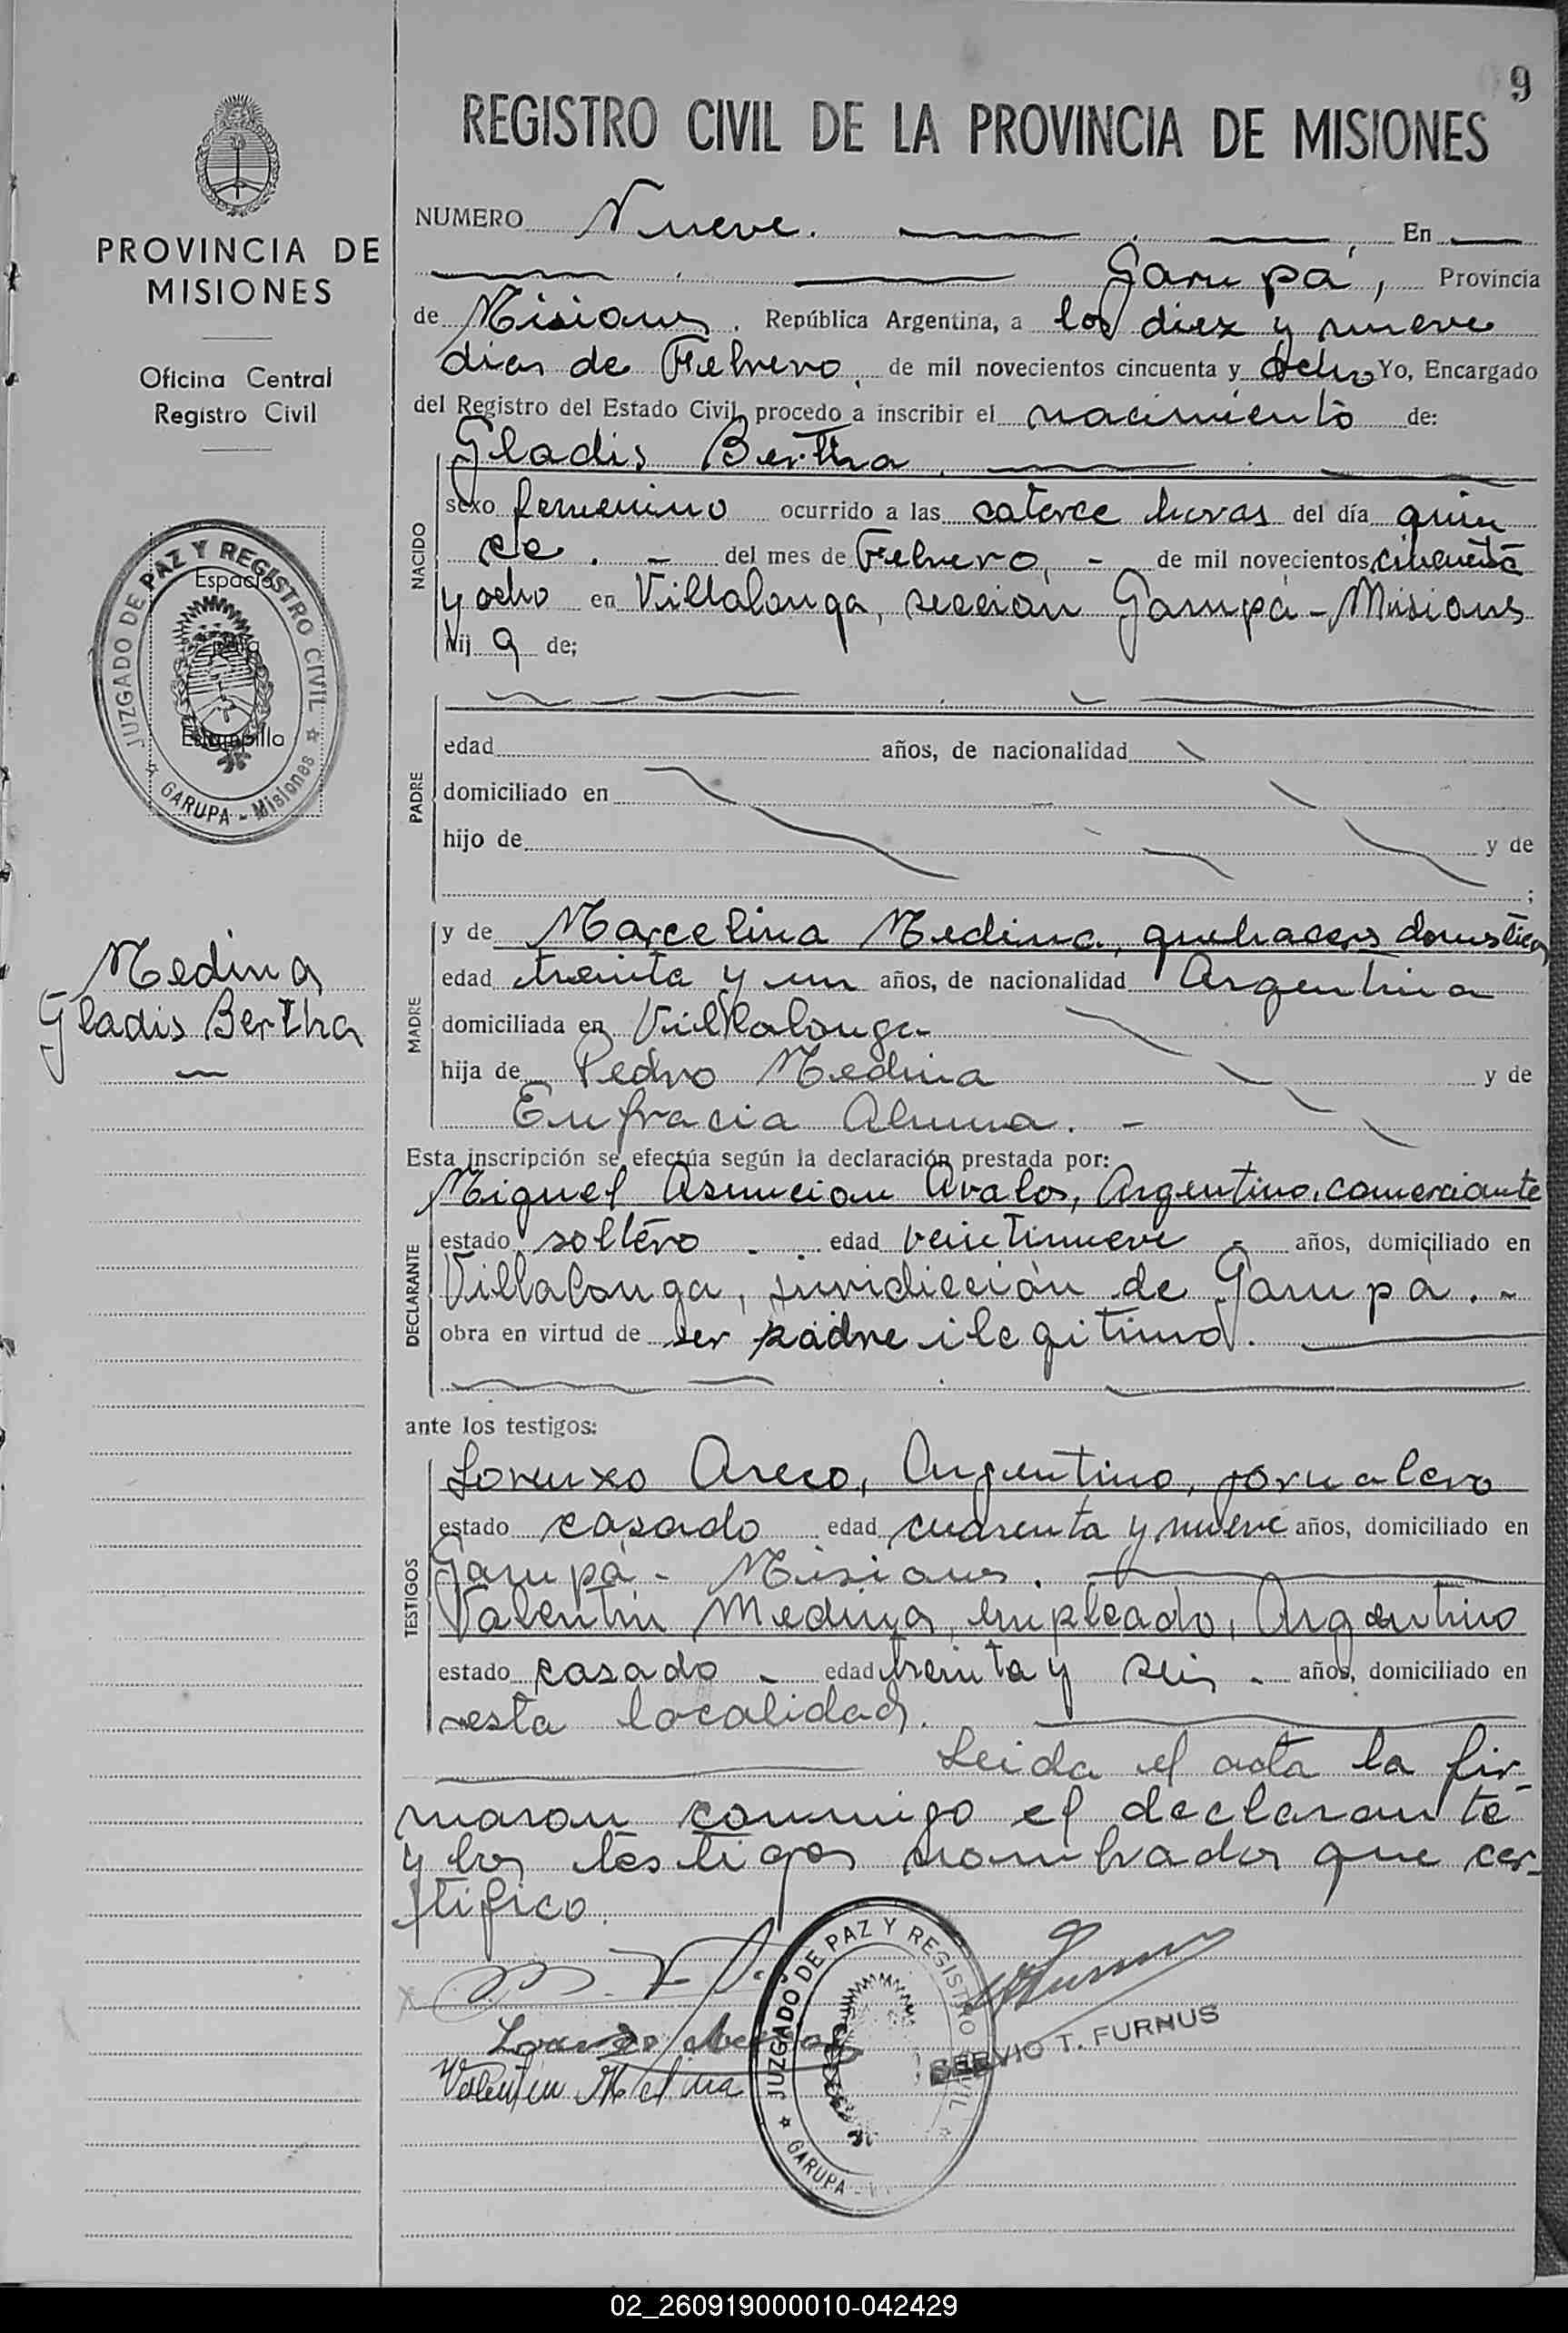 9
REGISTRO CIVIL DE LA PROVINCIA DE MISIONES
PROVINCIA DE
MISIONES
Oficina Central
Registro Civil
JUZGADO DE PAZ Y REGISTRO CIVIL
GARUPA - Misiones
Espacio
para
Estampilla
Medina
Gladis Bertha
NUMERO Nueve. En
Garupá, Provincia
de Misiones. República Argentina, a los diez y nueve
dias de Febrero, de mil novecientos cincuenta y ocho Yo, Encargado
del Registro del Estado Civil, procedo a inscribir el nacimiento de:
NACIDO
Gladis Bertha.
sexo femenino ocurrido a las catorce horas del día quin
ce. - del mes de Febrero, - de mil novecientos cincuenta
y ocho en Villalonga, seccion Garupá - Misiones
hij a de;
PADRE
edad años, de nacionalidad
domiciliado en
hijo de y de
;
MADRE
y de Marcelina Medina, quehaceres domesticos
edad treinta y un años, de nacionalidad Argentina
domiciliada en Villalonga
hija de Pedro Medina y de
Eufracia . -
Esta inscripción se efectúa según la declaración prestada por:
DECLARANTE
Miguel Asuncion Avalos, Argentino, comerciante
estado soltero . . edad veintinueve - años, domiciliado en
Villalonga, juridicción de Garupá. -
obra en virtud de ser padre ilegitimo.
ante los testigos:
TESTIGOS
Lorenzo Areco, Argentino, jornalero
estado casado edad cuarenta y nueve años, domiciliado en
Garupá - Misiones.
Valentin Medina, empleado, Argentino
estado casado - edad treinta y seis - años, domiciliado en
esta localidad.
Leida el acta la fir-
maron conmigo el declarante
y los testigos nombrados que cer-
tifico.
JUZGADO DE PAZ Y REGISTRO CIVIL
GARUPA -
SERVIO T. FURNUS
Valentin Medina
02_260919000010-042429